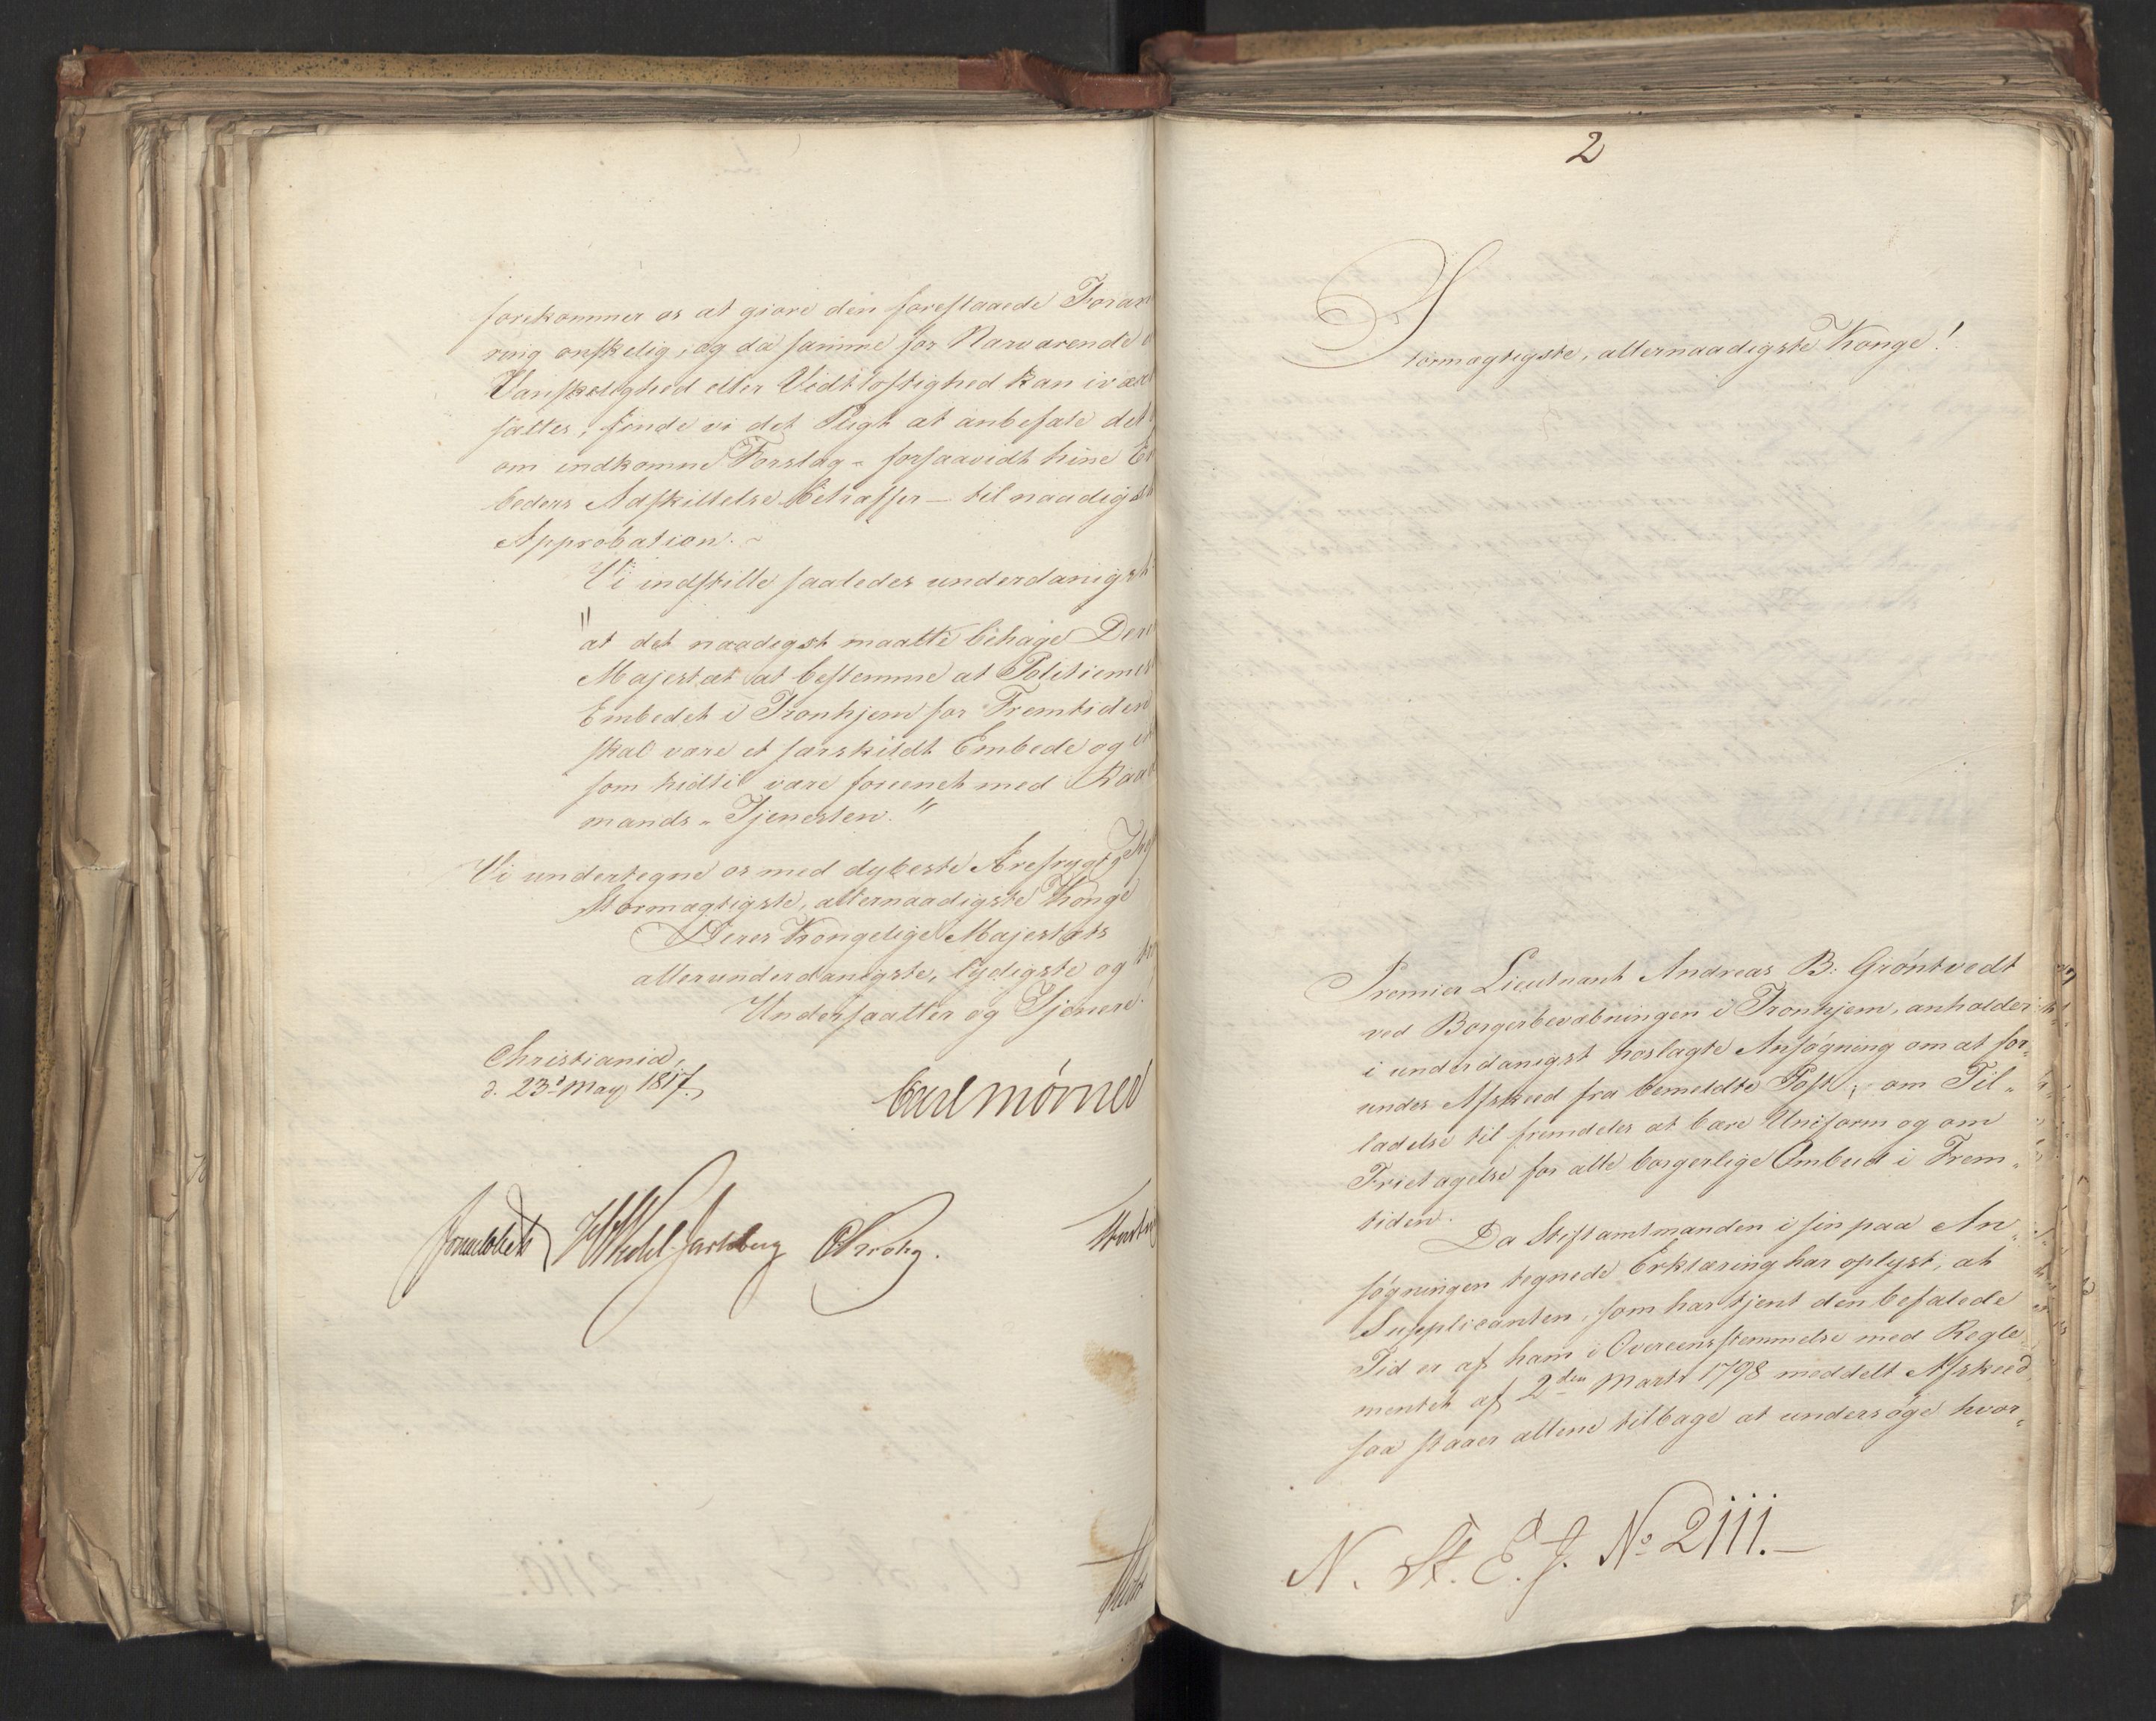 forekommer os at giøre den foreslaaede Foran
ring ønskelig, og da samme for Nærværende
Vanskelighed eller Vidtløftighed kan iværk
sættes, finde vi det Pligt at anbefale det
om indkomne Forslag - forsaavidt hine Em
beders Adskillelse betræffer - til naadigst
Approbation. -
Vi indstille saaledes underdanigst
"at det naadigst maatte behage Deres
Majestæt at bestemme at Politiemes
Embedet i Tronhjem for Fremtiden
skal være et særskildt Embede og ei
som hidtil være foreenet med Raad
mands-Tjenesten."
Vi undertegne os med dybeste Ærefrygt
Stormægtigste, allernaadigste Konge
Deres Kongelige Majestæts
allerunderdanigste, lydigste og
Undersaatter og Tjenere!
Christiania,
d. 23d May 1817.
Carl Mörner
Sommerhielm HWedel Jarlsberg CKrohg.
2
Stormægtigste, allernaadigste Konge!
Premier Lieutnant Andreas B. Grøntvedt
ved Borgerbevæbningen i Tronhjem, anholder
i underdanigst hoslagte Ansøgning om at for-
undes Afskeed fra bemeldte Post, om Til-
ladelse til fremdeles at bære Uniform og om
Frietagelse for alle borgerlige Ombud i Frem-
tiden.
Da Stiftamtmanden i sin paa An-
søgningen tegnede Erklæring har oplyst, at
Supplicanten, som har tjent den befalede
Tid er af ham i Overeensstemmelse med Regle-
mentet af 2den Marts 1798 meddelt Afskeed
saa staaer allene tilbage at undersøge hvor-
N. St. E. J. No 2111.-